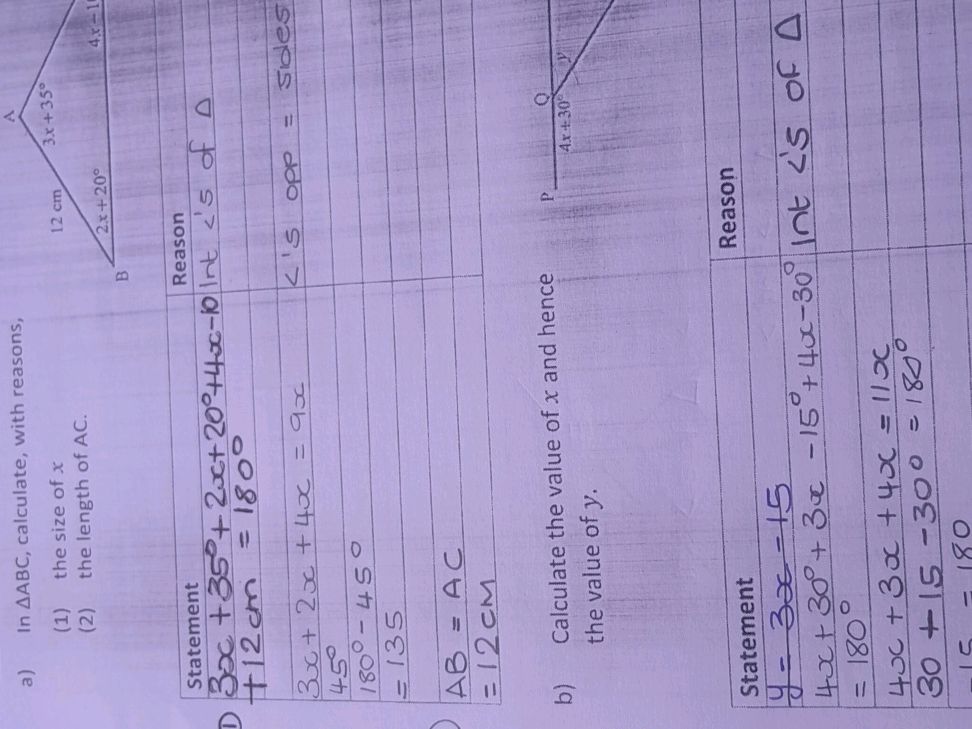 a) In ΔABC, calculate, with reasons,
(1) the size of x
(2) the length of AC.
A
12 cm
3x+35°
2x+20°
B
Statement Reason
1) 3x + 35° + 2x + 20° + 4x - 10 Int <'s of Δ
+ 12cm = 180°
3x + 2x + 4x = 9x <'s opp = sides
45°
180° - 45°
= 135
AB = AC
= 12cm
b) Calculate the value of x and hence
the value of y.
P
Q
4x+30°
y
Statement Reason
y = 3x - 15
4x + 30° + 3x - 15° + 4x - 30° Int <'s of Δ
= 180°
4x + 3x + 4x = 11x
30 + 15 - 30° = 180°
= 180